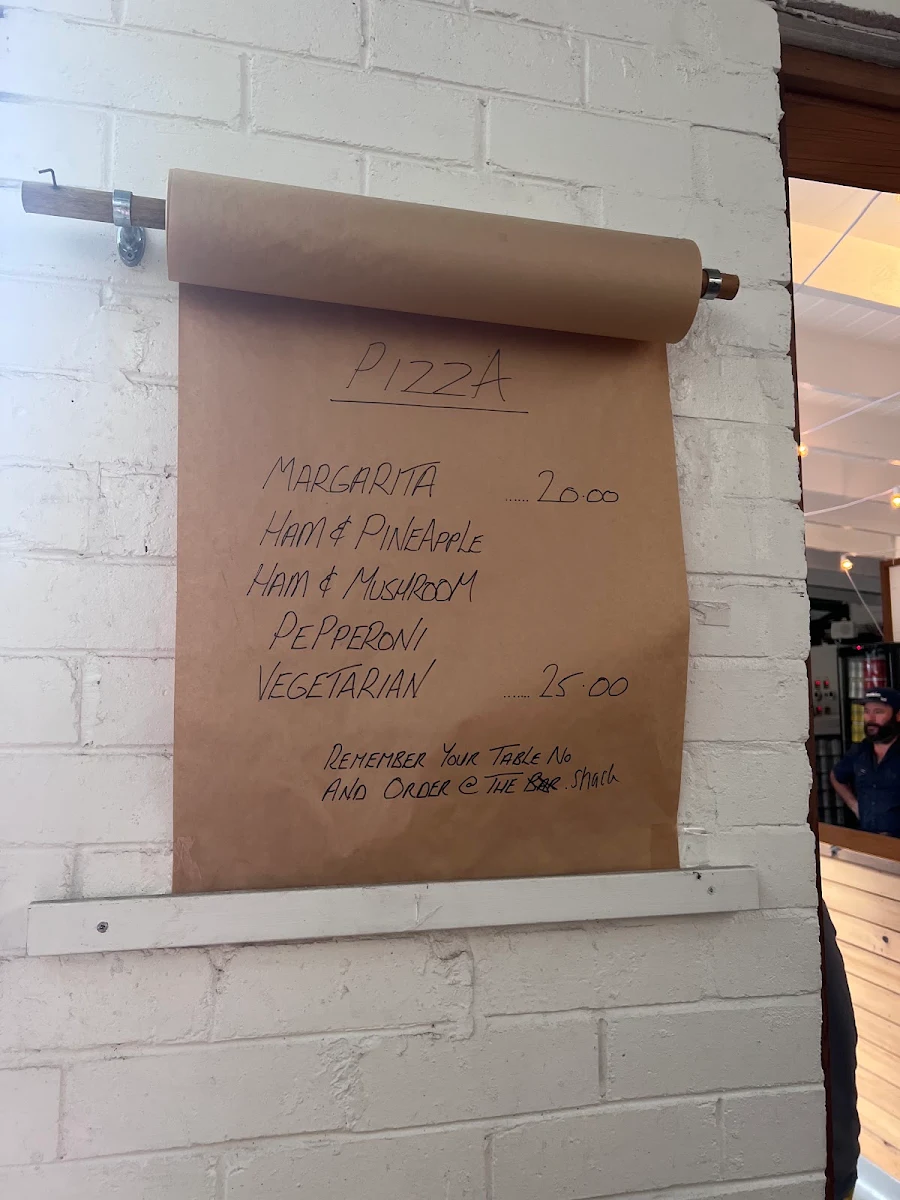 PIZZA
MARGARITA ...... 20.00
HAM & PINEAPPLE
HAM & MUSHROOM
PEPPERONI
VEGETARIAN ....... 25.00
REMEMBER YOUR TABLE NO
AND ORDER @ THE BAR. Shack